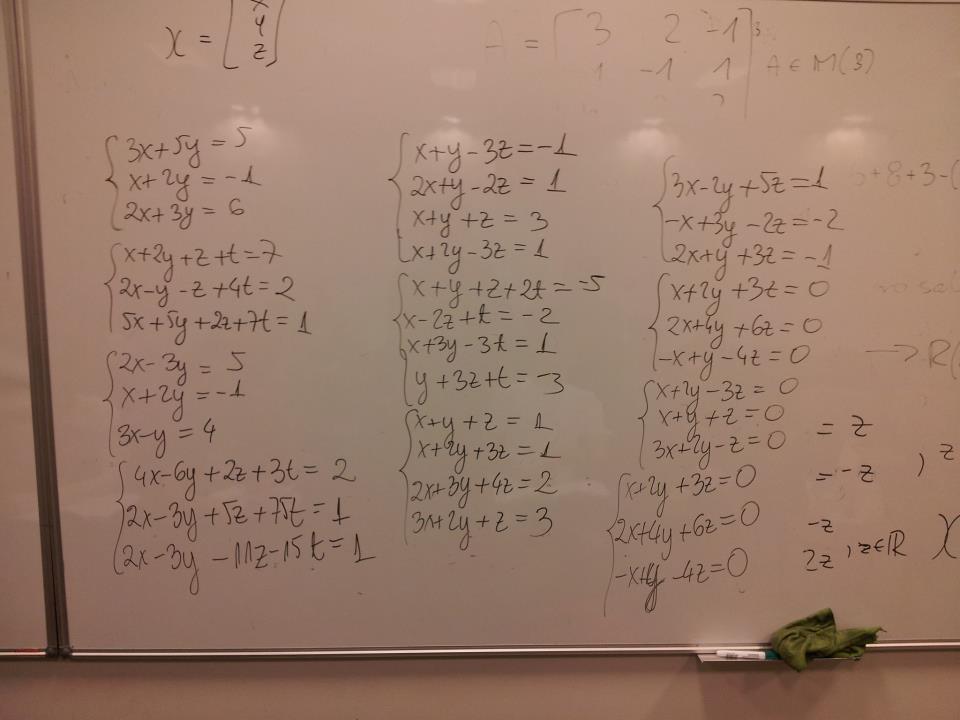 X = [x y z]
A = [3 2 -1
1 -1 1 A ∈ M(3)
3x+5y = 5
x+2y = -1
2x+3y = 6
x+2y+z+t=7
2x-y-z+4t=2
5x+5y+2z+7t=1
2x-3y = 5
x+2y = -1
3x-y = 4
4x-6y+2z+3t = 2
2x-3y+5z+75t=1
2x-3y-11z-15t=1
x+y-3z=-1
2x+y-2z = 1
x+y+z = 3
x+2y-3z=1
x+y+z+2t=-5
x-2z+t = -2
x+3y-3t=1
y+3z+t=-3
x+y+z = 1
x+2y+3z=1
2x+3y+4z=2
3x+2y+z = 3
3x-2y+5z=1
-x+3y-2z=-2
2x+y+3z=-1
x+2y+3z=0
2x+4y+6z=0
-x+y-4z=0
x+2y-3z= 0
x+y+z=0
3x+2y-z=0
x+2y+3z=0
2x+4y+6z=0
-x+y-4z=0
+8+3-(
→ R(
= z
= -z , z
-z
2z , z∈R X